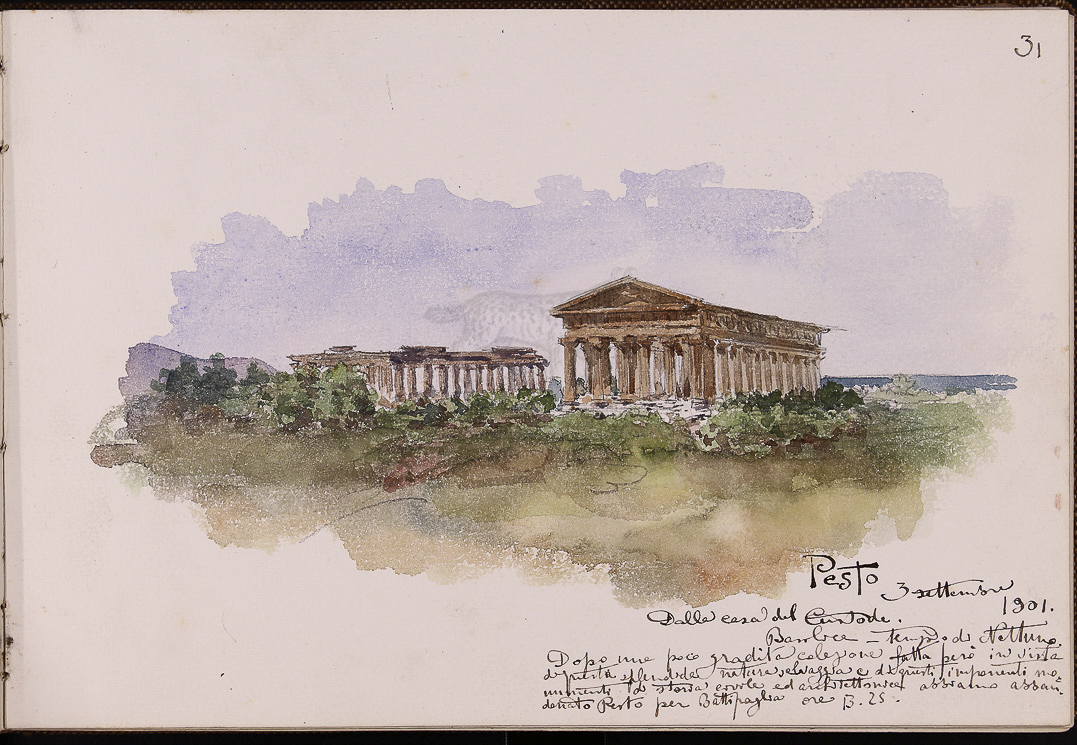 31
Pesto 3 settembre
1901.
Dalla casa del Custode.
Tempio di Nettuno.
Dopo una poco gradita colezione fatta però in vista
di questa splendida natura selvaggia e di questi imponenti mo-
numenti di storia civile ed architettonica abbiamo abban-
donato Pesto per Battipaglia ore 13.25.